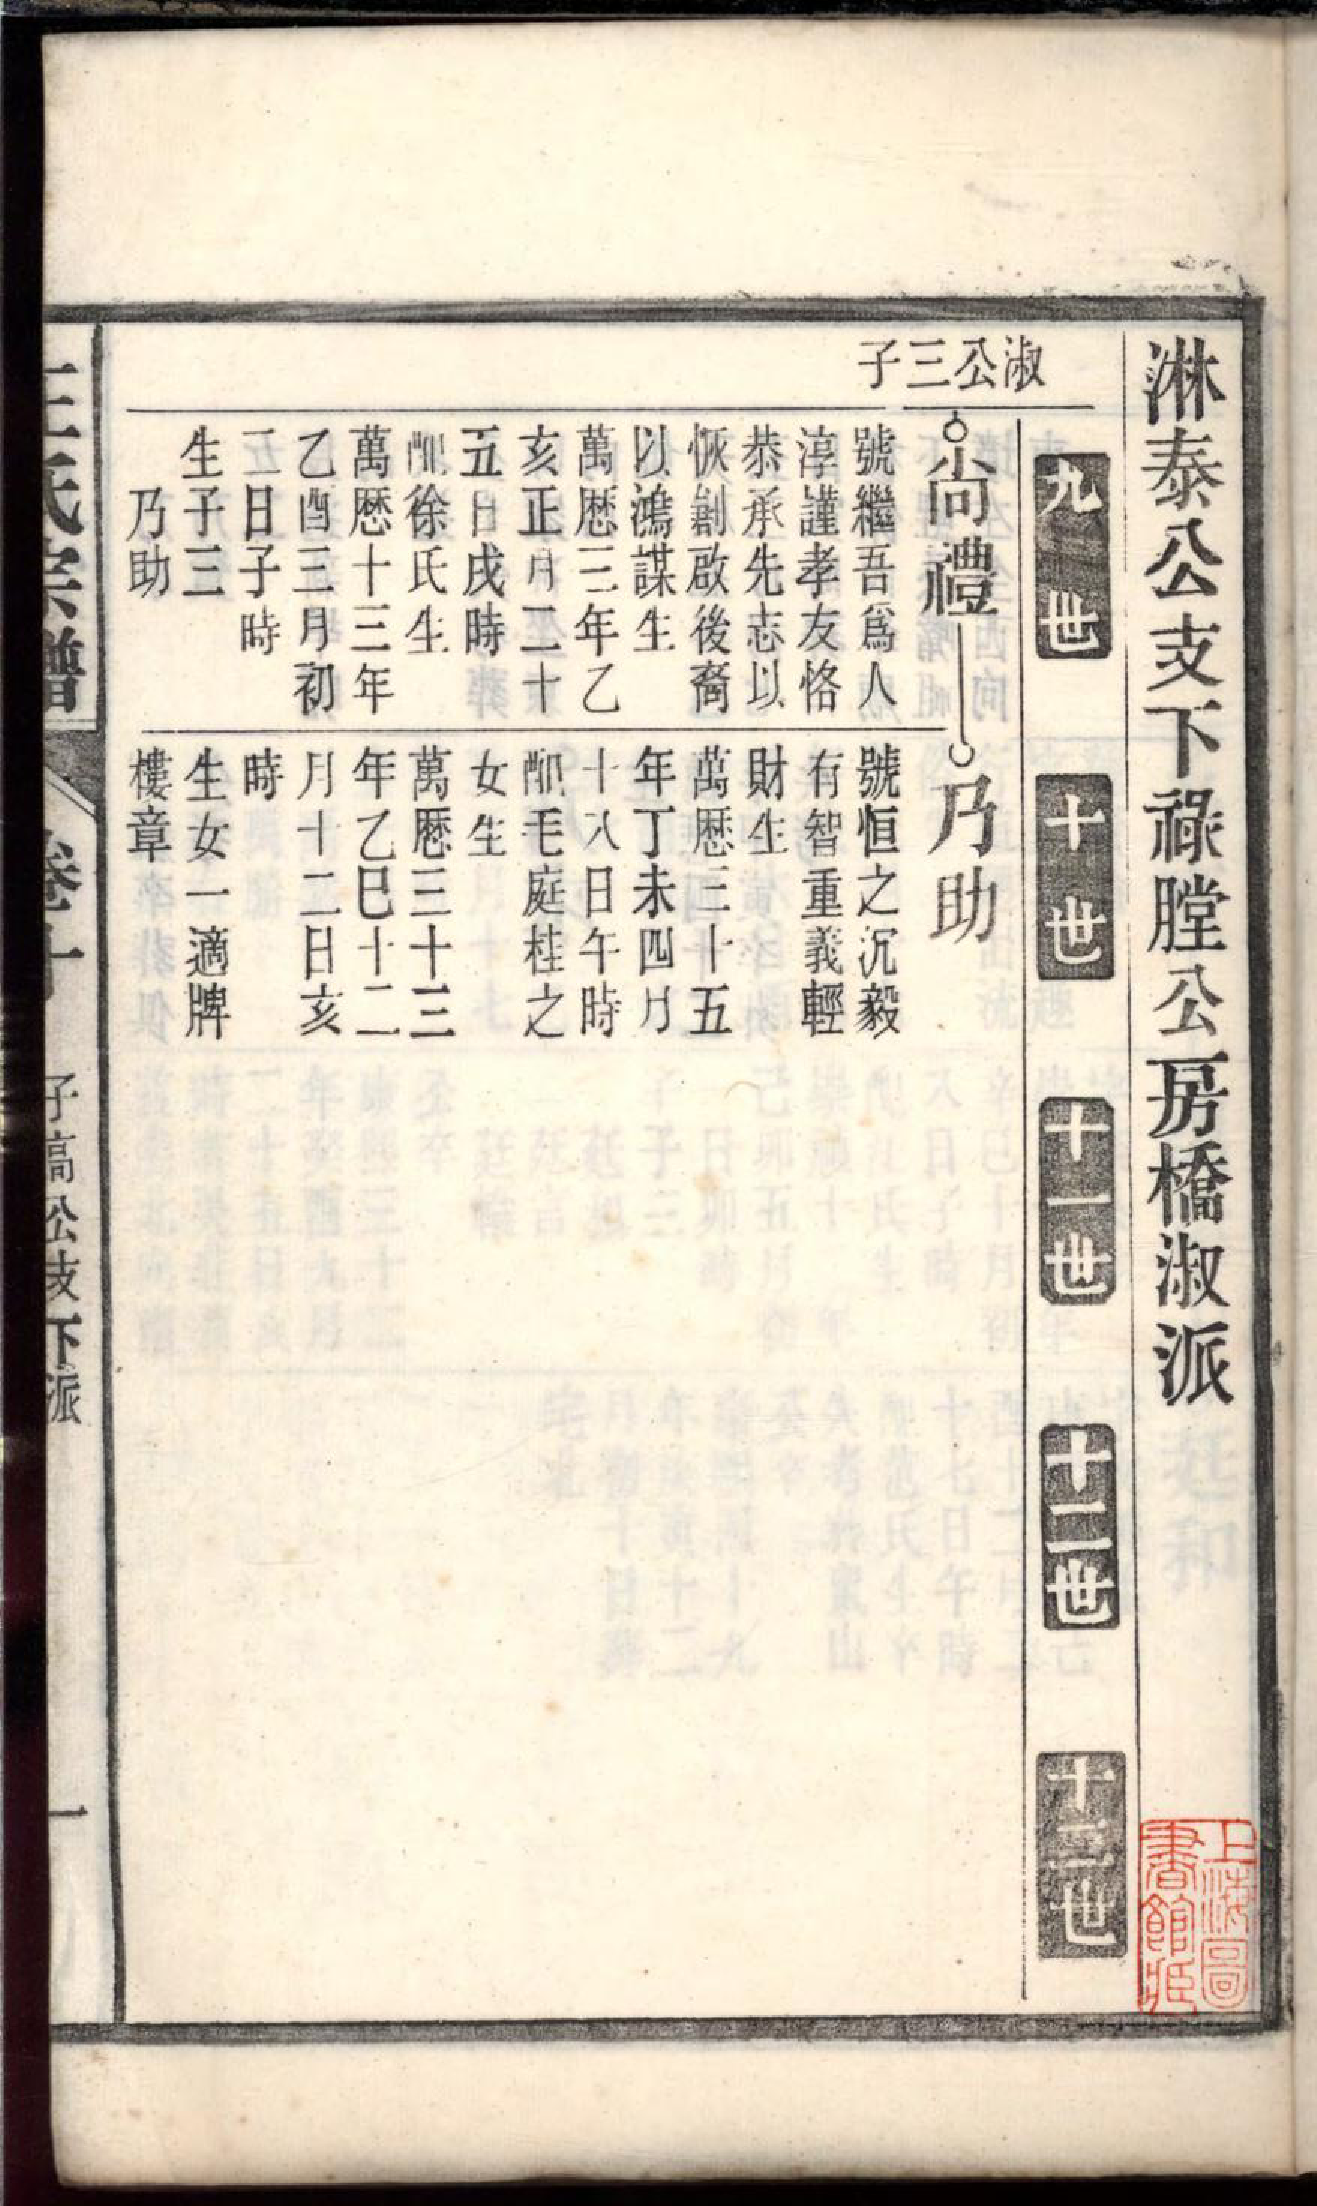 淋泰公支下祿膛公房橋淑派
九世
十世
十一世
十二世
十三世
淑公三子
尚禮
號繼吾爲人
淳謹孝友恪
恭承先志以
恢創啟後裔
以鴻謀生
萬歷三年乙
亥正月二十
五日戌時
配徐氏生
萬歷十三年
乙酉三月初
二日子時
生子三
乃助
乃助
號恒之沉毅
有智重義輕
財生
萬歷三十五
年丁未四月
十八日午時
配毛庭桂之
女生
萬歷三十三
年乙巳十二
月十二日亥
時
生女一適牌
樓章
王氏宗譜
卷十
子高公支下派
一
上海圖
書館藏